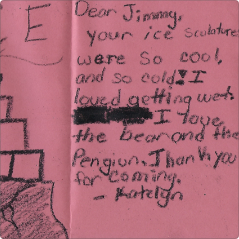 E
Dear Jimmy,
your ice sculptures
were so cool,
and so cold! I
loved getting wet.
I love
the bear and the
Pengiun. Thank you
for coming.
- Katelyn